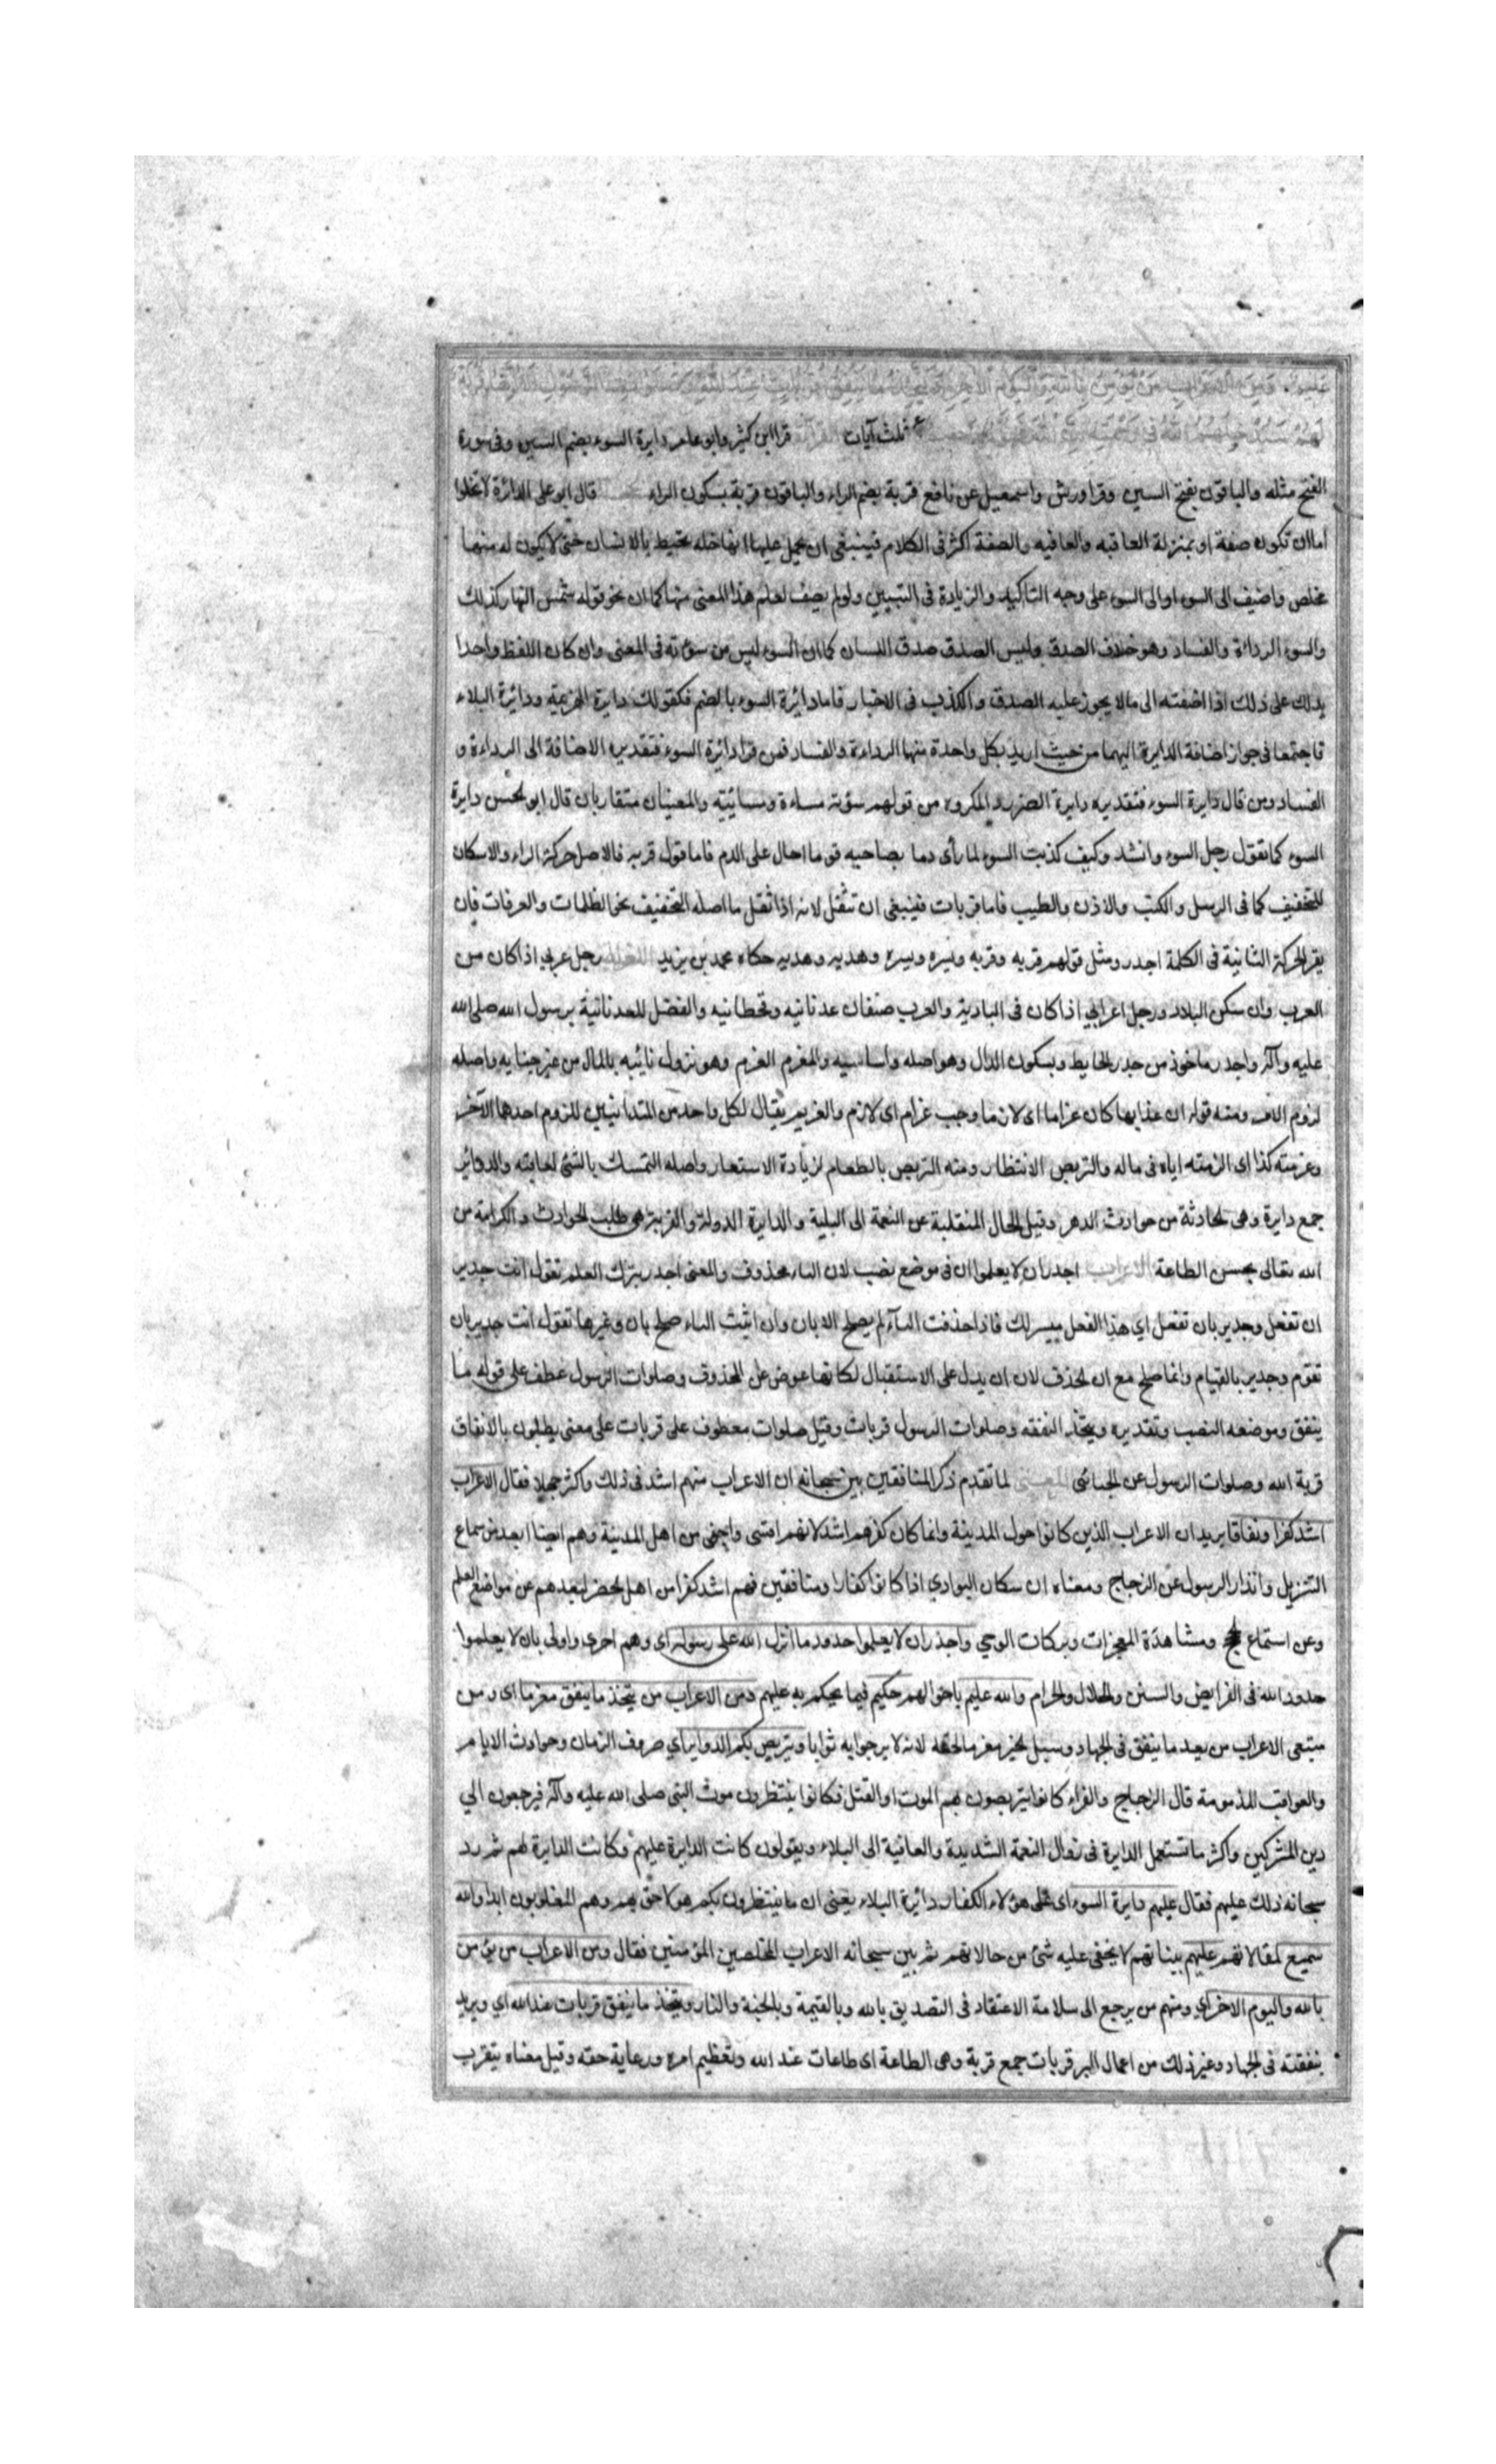 عليم ومن الاعراب من يؤمن بالله واليوم الاخر ويتخذ ما ينفق قربات عند الله وصلوات الرسول الا انها قربة
لهم سيدخلهم الله في رحمته ان الله غفور رحيم ثلث آيات القراءة قرا ابن كثير وابو عامر دايرة السوء بضم السين وفي سورة
الفتح مثله والباقون بفتح السين وقرا ورش واسمعيل عن نافع قربة بضم الراء والباقون قربة بسكون الراء قال ابو علي الدائرة لا تخلوا
اما ان تكون صفة او بمنزلة العاقبه والعافيه والصفة اكثر في الكلام فينبغي ان يحمل عليها انها خله تحيط بالانسان حتى لا يكون له منها
مخلص واضيف الى السوء او الى السوء على وجه التاكيد والزيادة في التبيين ولو لم يضف لعلم هذا المعنى منها كما ان نحو قوله شمس النهار كذلك
والسوء الرداءة والفساد وهو خلاف الصدق وليس الصدق صدق اللسان كما ان السوء ليس من سؤته في المعنى وان كان اللفظ واحدا
يدلك على ذلك اذا اضفته الى ما لا يجوز عليه الصدق والكذب في الاخبار فاما دائرة السوء بالضم فكقولك دايرة الهزيمة ودائرة البلاء
فاجتمعا في جواز اضافة الدايرة اليهما من حيث اريد بكل واحدة منها الرداءة والفساد فمن قرا دائرة السوء فتقديره الاضافة الى الرداءة و
الفساد ومن قال دايرة السوء فتقديره دايرة الضرر والمكروه من قولهم سؤته مساءة ومسائية والمعنيان متقاربان قال ابو الحسن دايرة
السوء كما تقول رجل السوء وانشد وكيف كذيب السوء لما رأى دما بصاحبه يوما احال على الدم فاما قول قربه فالاصل حركة الراء والاسكان
للتخفيف كما في الرسل والكتب والاذن والطيب فاما قربات فينبغي ان تثقل لانه اذا ثقل ما اصله التخفيف نحو الظلمات والعرفات فان
يقر الحركة الثانية في الكلمة اجدر ومثل قولهم قربه وقربه ويسره ويسره وهدبه وهدبه حكاه محمد بن يزيد اللغة رجل عربي اذا كان من
العرب وان سكن البلاد ورجل اعرابي اذا كان في البادية والعرب صنفان عدنانيه وقحطانيه والفضل للعدنانية برسول الله صلى الله
عليه وآله واجدر ماخوذ من جدر الحايط وبسكون الدال وهو اصله واساسيه والمغرم الغرم وهو نزول نائبه بالمال من غير جنايه واصله
لزوم الامر ومنه قوله ان عذابها كان غراما اى لازما وحب غرام اى لازم والغريم يقال لكل واحد من المتدانيين للزوم احدهما الآخر
وغرمته كذا اى الزمته اياه في ماله والتربص الانتظار ومنه التربص بالطعام لزيادة الاستعار واصله التمسك بالشئ لعاقبته والدوائر
جمع دايرة وهي الحادثة من حوادث الدهر وقيل الحال المنقلبة عن النعمة الى البلية والدايرة الدولة والقربة هي طلب الحوادث والكرامة من
الله تعالى بحسن الطاعة الاعراب اجدر ان لا يعلموا ان في موضع نصب لان الباء محذوف والمعنى اجدر بترك العلم تقول انت جدير
ان تفعل وجدير بان تفعل اي هذا الفعل ميسر لك فاذا حذفت الباء لم يصلح الا بان وان اثبت الباء صلح بان وغيرها تقول انت جدير بان
تقوم وجدير بالقيام وانما صلح مع ان الحذف لان ان يدل على الاستقبال لكانها عوض عن المحذوف وصلوات الرسول عطف على قوله ما
ينفق وموضعه النصب وتقديره ويتخذ النفقه وصلوات الرسول قربات وقيل صلوات معطوف على قربات على معنى يطلبون بالانفاق
قربة الله وصلوات الرسول عن الجبائي المعنى لما تقدم ذكر المنافقين بين سبحانه ان الاعراب منهم اشد في ذلك واكثر جهلا فقال الاعراب
اشد كفرا ونفاقا يريد ان الاعراب الذين كانوا حول المدينة وانما كان كفرهم اشد لانهم اقسى واجفى من اهل المدينة وهم ايضا ابعد من سماع
التنزيل وانذار الرسول عن الزجاج ومعناه ان سكان البوادي اذا كانوا كفارا ومنافقين فهم اشد كفرا من اهل الحضر لبعدهم عن مواضع العلم
وعن استماع الحج ومشاهدة المعجزات وبركات الوحي واجدر ان لا يعلموا حدود ما انزل الله على رسوله اى وهم احرى واولى بان لا يعلموا
حدود الله في الفرايض والسنن والحلال والحرام والله عليم باحوالهم حكيم فيما يحكم به عليهم ومن الاعراب من يتخذ ما ينفق مغرما اى ومن
منتفعى الاعراب من يعد ما ينفق في الجهاد وسبيل الخير مغرما لحقه لانه لا يرجوا به ثوابا ويتربص بكم الدواير اي صروف الزمان وحوادث الايام
والعواقب المذمومة قال الزجاج والفراء كانوا يتربصون بهم الموت او القتل فكانوا ينتظرون موت النبي صلى الله عليه وآله فيرجعون الي
دين المشركين واكثر ما تستعمل الدايرة في زوال النعمة الشديدة والعافية الى البلاء ويقولون كانت الدايرة عليهم وكانت الدايرة لهم ثم رد
سبحانه ذلك عليهم فقال عليهم دايرة السوء اى على هؤلاء الكفار دائرة البلاء يعنى ان ما ينتظرون بكم هو لاحق بهم وهم المغلوبون ابدا والله
سميع لمقالاتهم عليهم بنياتهم لا يخفى عليه شئ من حالاتهم ثم بين سبحانه الاعراب المخلصين المؤمنين فقال ومن الاعراب من يؤمن
بالله واليوم الاخر اي ومنهم من يرجع الى سلامة الاعتقاد في التصديق بالله وبالقيمة وبالجنة والنار ويتخذ ما ينفق قربات عند الله اي ويريد
بنفقته في الجهاد وغير ذلك من اعمال البر قربات جمع قربة وهى الطاعة اى طاعات عند الله وتعظيم امره ورعاية حقه وقيل معناه يتقرب